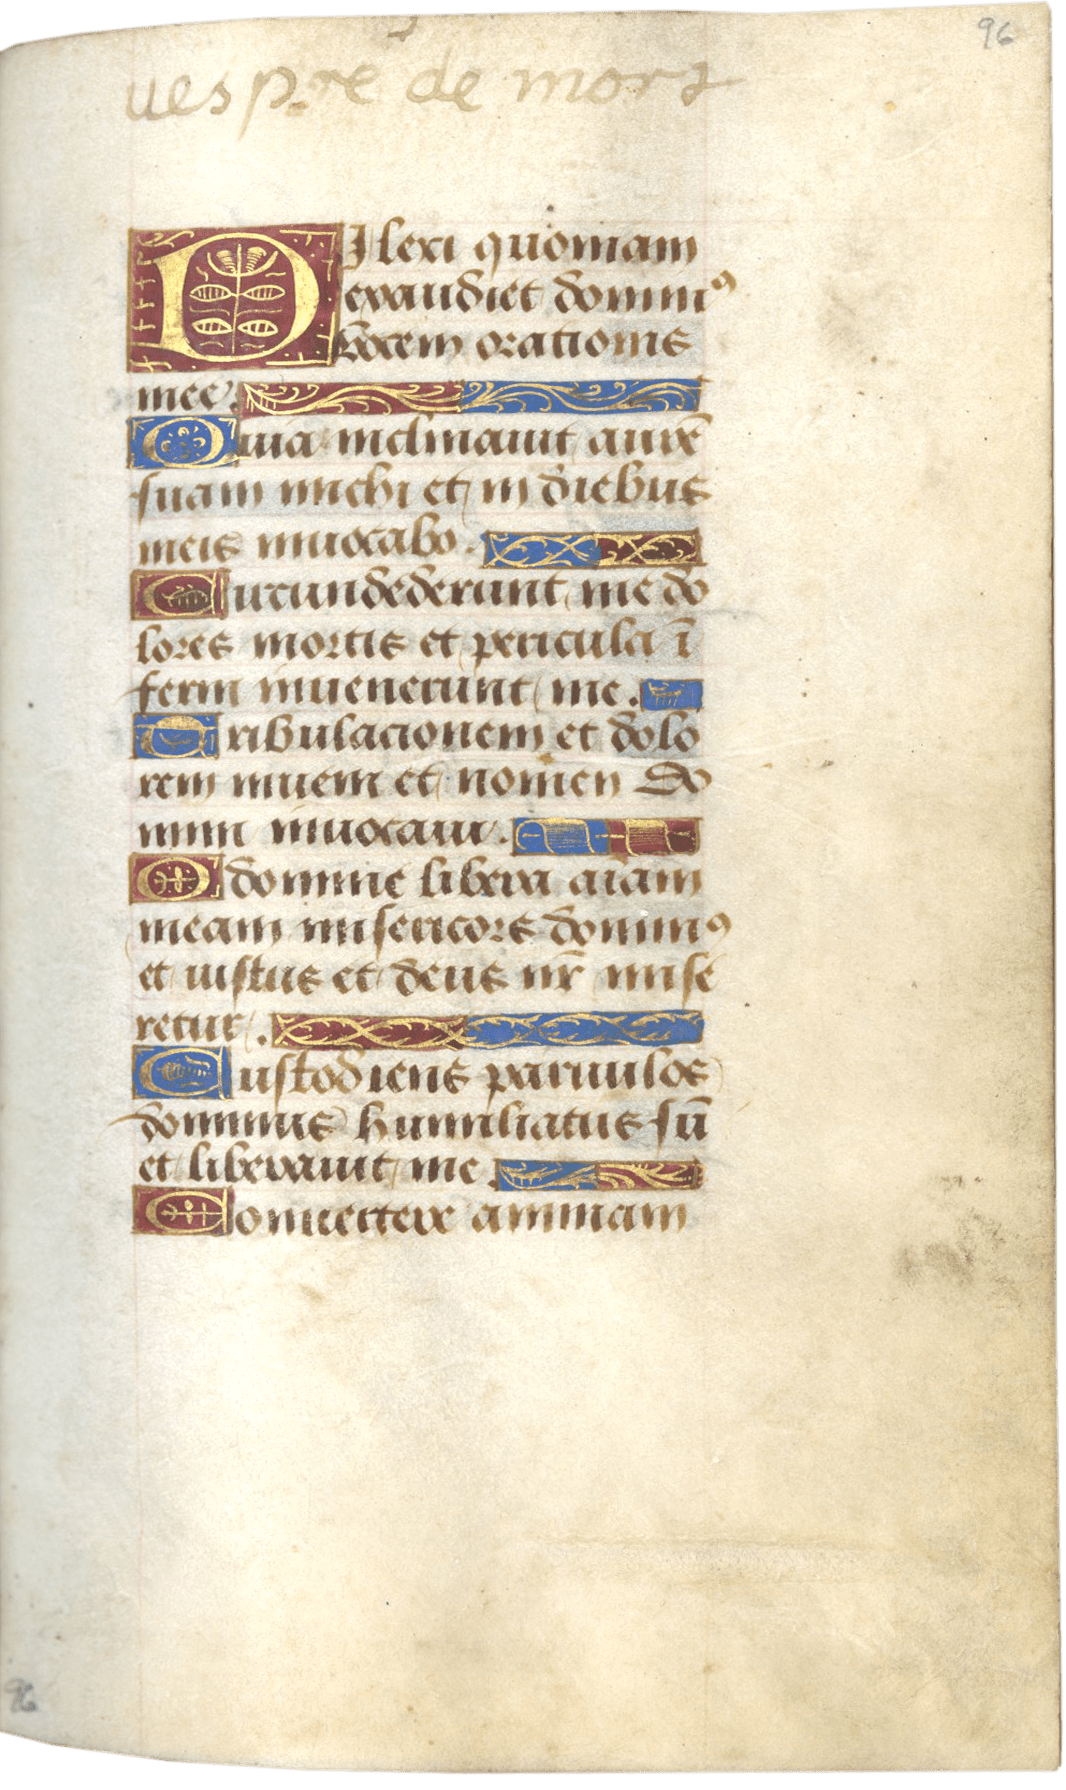 96
uespre de mort
DIlexi quoniam
exaudiet dominꝰ
vocem orationis
mee.
Quia inclinauit aurē
suam michi et in diebus
meis inuocabo.
Circundederunt me do
lores mortis et pericula ī
ferni inuenerunt me.
Tribulacionem et dolo
rem inueni et nomen do
mini inuocaui.
O domine libera aīam
meam misericors dominꝰ
et iustus et deus nr̄ mise
retur.
Custodiens paruulos
dominus humiliatus sū
et liberauit me
Conuertere animam
96